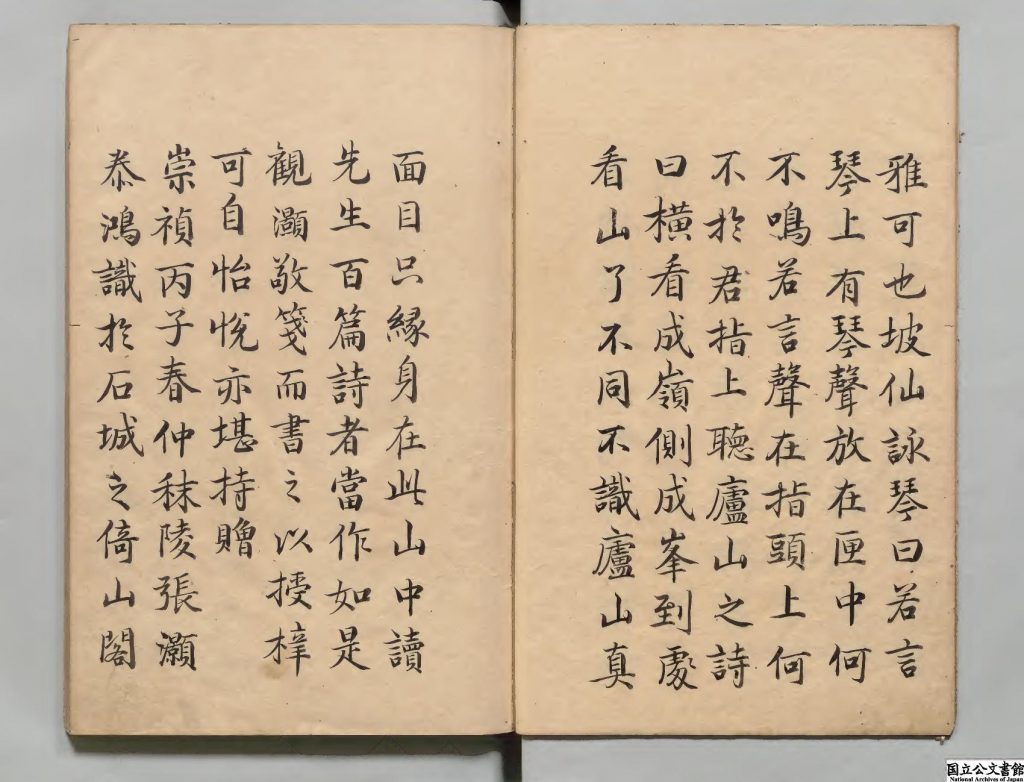 雅可也坡仙詠琴曰若言
琴上有琴聲放在匣中何
不鳴若言聲在指頭上何
不於君指上聽廬山之詩
曰橫看成嶺側成峯到處
看山了不同不識廬山真
面目只緣身在此山中讀
先生百篇詩者當作如是
觀灝敬箋而書之以授梓
可自怡悅亦堪持贈
崇禎丙子春仲秣陵張灝
恭鴻識於石城之倚山閣
国立公文書館
National Archives of Japan